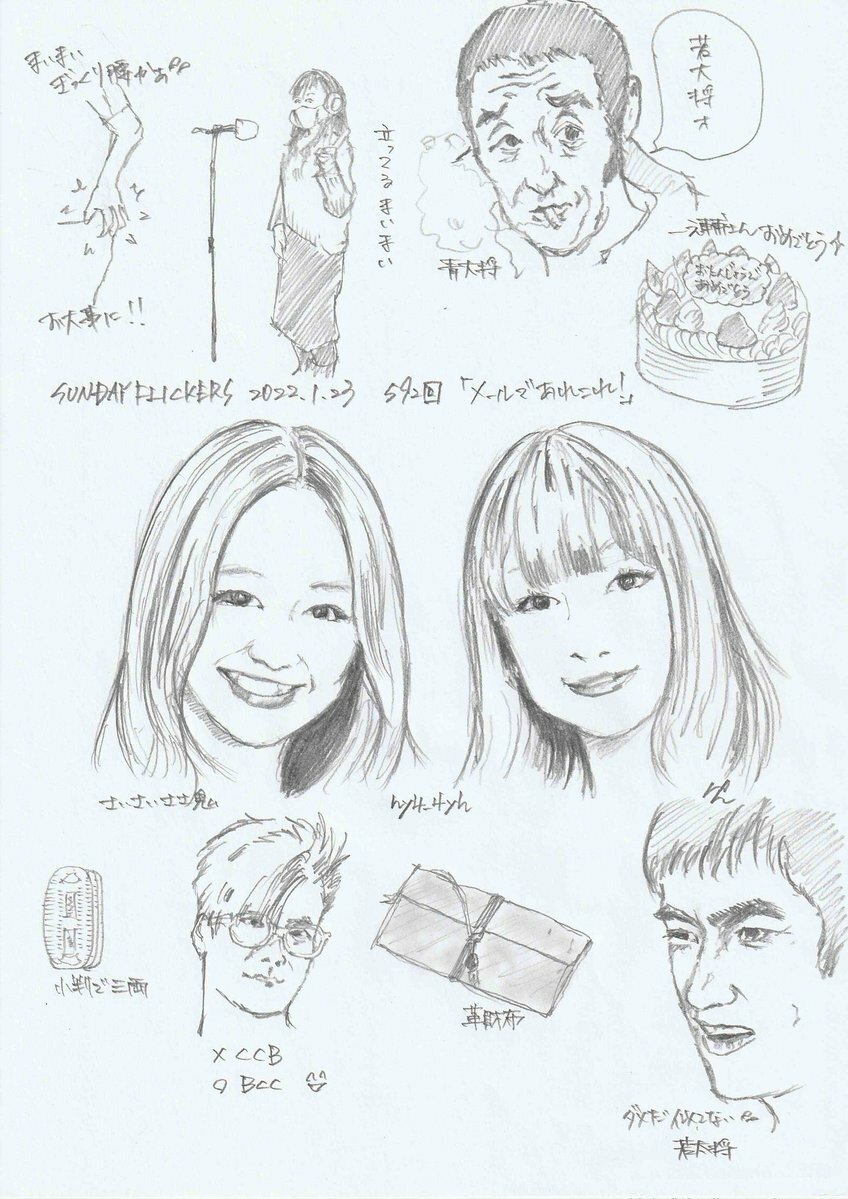 まいまい
ぎっくり腕かぁ
お大事に!!
立ってるまいまい
若大将才
青大将
一之輔さんおめでとう
おたんじょうび
おめでとう
SUNDAY FLICKERS 2022.1.23 592回「メールであれこれ!」
hy4_4yh
りん
小判で三両
× CCB
○ BCC
革財布
ダメだ 似てない
若大将